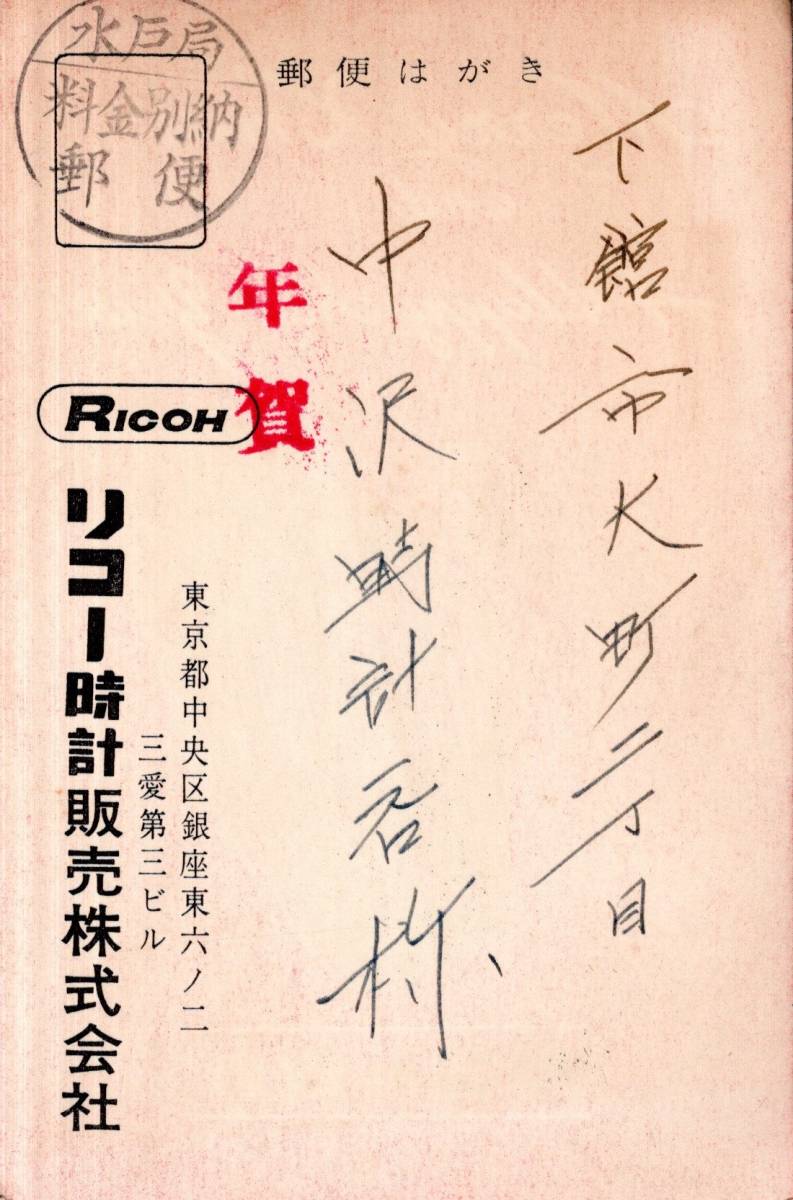 郵便はがき
水戸局
料金別納
郵便
下館市大町二丁目
中沢時計店様
年賀
RICOH
東京都中央区銀座東六ノ二
三愛第三ビル
リコー時計販売株式会社